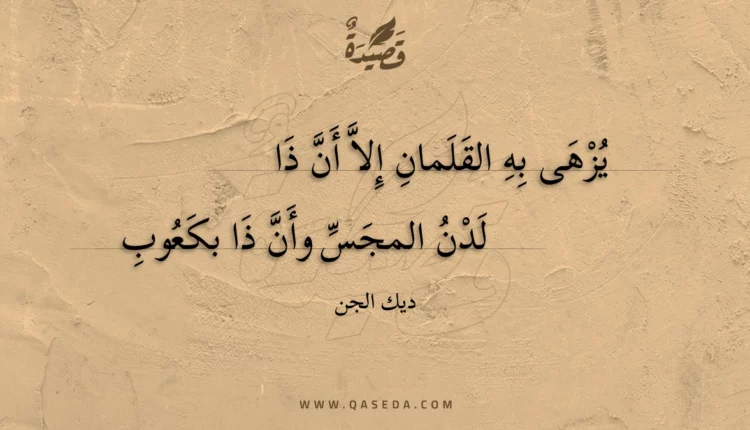 قَصِيدَةٌ
يُزْهَى بِهِ القَلَمانِ إِلاَّ أَنَّ ذَا
لَدْنُ المجَسِّ وأَنَّ ذَا بكَعُوبِ
ديك الجن
WWW.QASEDA.COM